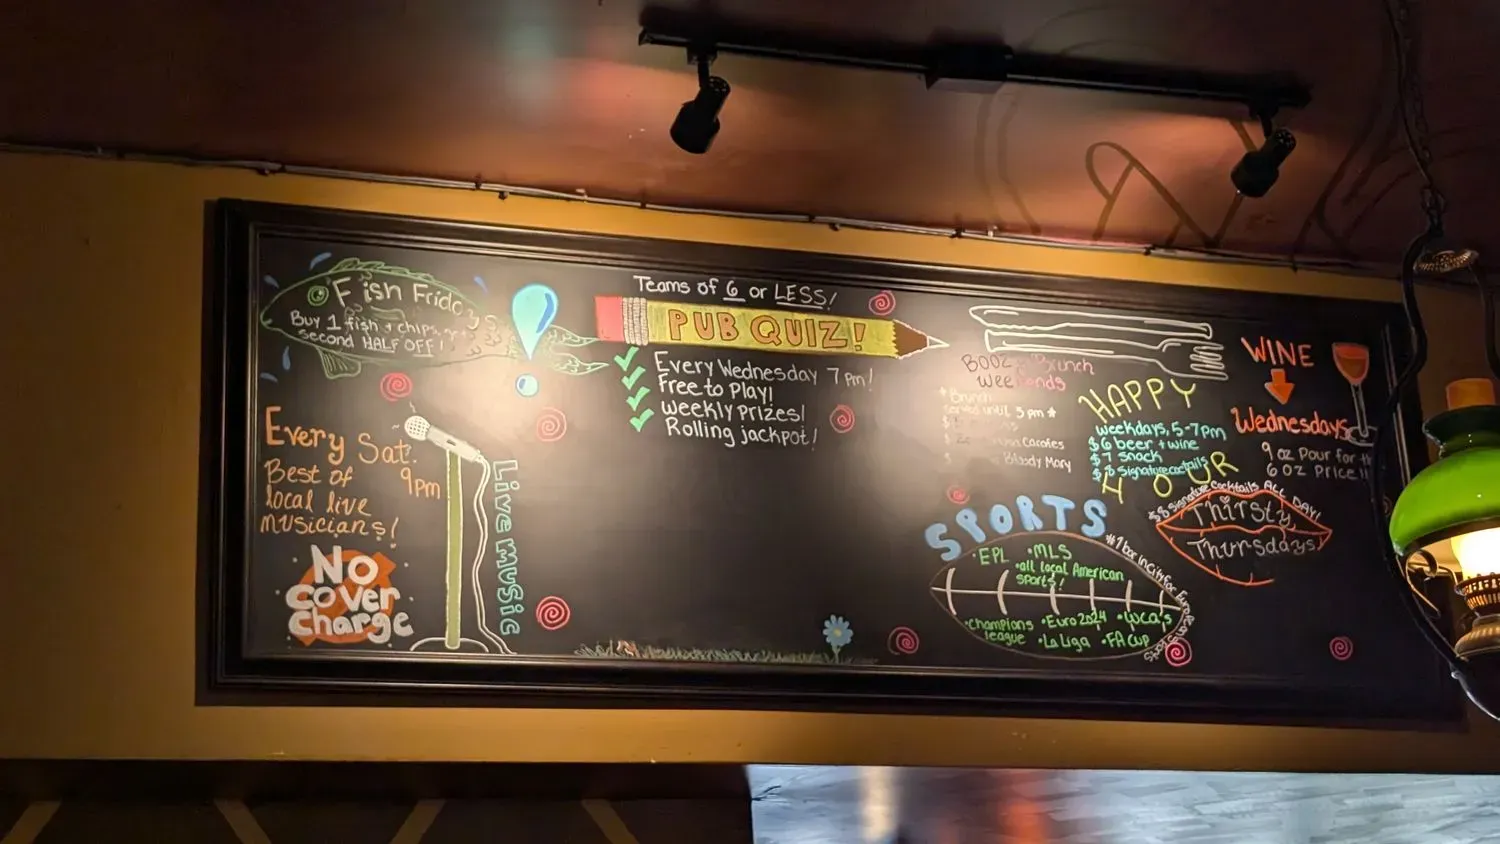 Fish Friday
Buy 1 fish + chips, get
second HALF OFF!
Every Sat.
9pm
Best of
local live
musicians!
NO
Cover
Charge
Live music
Teams of 6 or LESS!
PUB QUIZ!
Every Wednesday 7pm!
Free to Play!
Weekly prizes!
Rolling jackpot!
Brunch
Weekends
Brunch
served until 3 pm *
Carafes
Bloody Mary
HAPPY
Weekdays, 5-7pm
$6 beer + wine
$7 snack
$8 signature cocktails
HOUR
WINE
Wednesdays
9 oz Pour for the
6 oz Price!!
$8 signature cocktails ALL DAY!
Thirsty
Thursdays
SPORTS
#1 bar in City for European Sports
•EPL •MLS
•all local American
sports!
•Champions •Euro 2024
league •La Liga •FA Cup